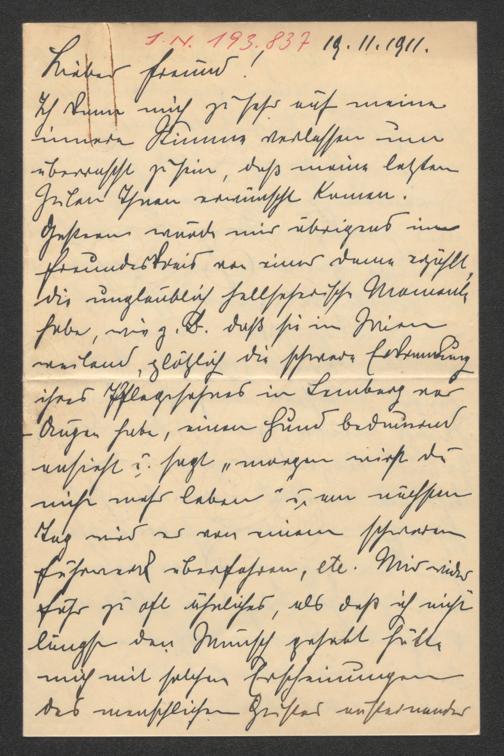 I.N. 193.837 19.11.1911.
Lieber Freund!
Ich kann mich zu sehr auf meine
innere Stimme verlassen um
überrascht zu sein, daß meine letzten
Zeilen Ihnen erwünscht kamen.
Gestern wurde mir übrigens im
Freundeskreis von einer Dame erzählt,
die unglaublich hellseherische Momente
habe, wie z. B. daß sie in Wien
weilend, plötzlich die schwere Erkrankung
ihres Pflegesohnes in Lemberg vor
Augen habe, einen Hund bedauernd
ansieht u. sagt „morgen wirst du
nicht mehr leben" u. am nächsten
Tag wird er von einem schweren
Fuhrwerk überfahren, etc. Mir wider
fuhr zu oft ähnliches, als daß ich nicht
längst den Wunsch gehabt hätte
mich mit solchen Erscheinungen
des menschlichen Geistes auseinander